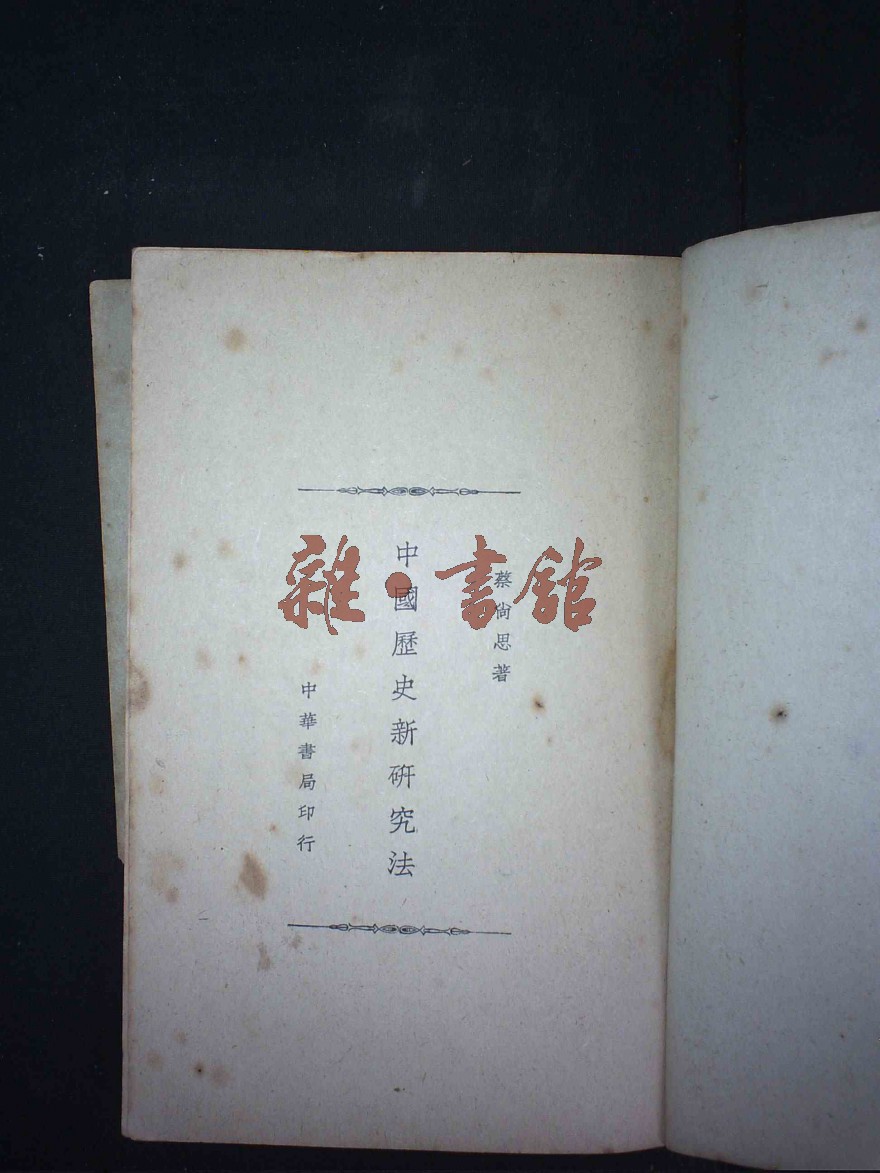 蔡尙思著
中國歷史新硏究法
中華書局印行
雜·書館